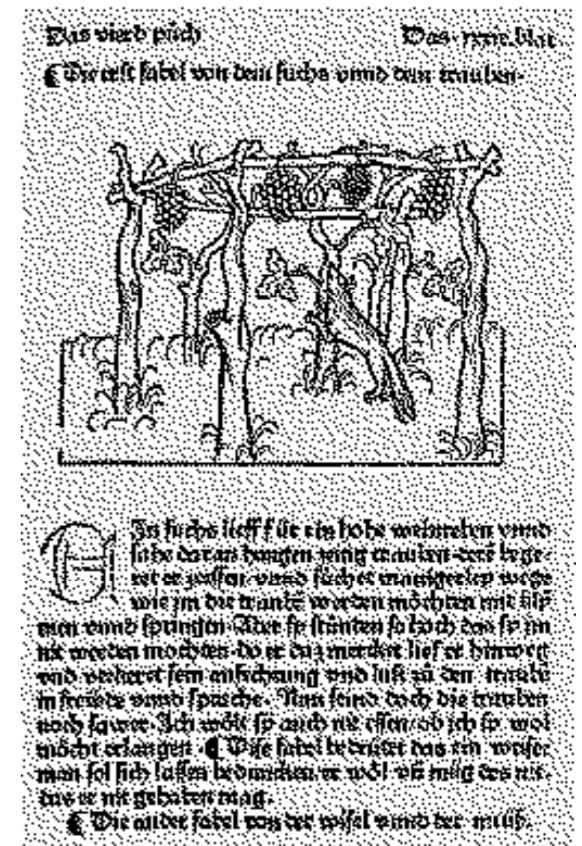 Das vierd půch Das .xxix. blat
Die erst fabel von dem fuchs vnnd den trauben.
Ein fuchs lieff für ein hohe weinreben vnnd
sahe daran hangen zeitig trauben dere bege-
ret er zeessen vnnd suchet manigerley wege
wie jm die traubē werden möchten mit klÿm
men vnnd springen. Aber sy stůnden so hoch das sy im
nit werden mochten do er daz mercket lief er hinweg
vnd verkeret sein anfechtung vnd lust zů den traubē
in freüde vnnd sprache. Nun seind doch die trauben
noch sawer. Ich wölt sy auch nit essen ob ich sy wol
möcht erlangen. Dise fabel bedeütet das ein weiser
man sol sich lassen beduncken er wöl vn̄ müg des nit
das er nit gehaben mag.
Die ander fabel von der wisel vnnd der meüß.